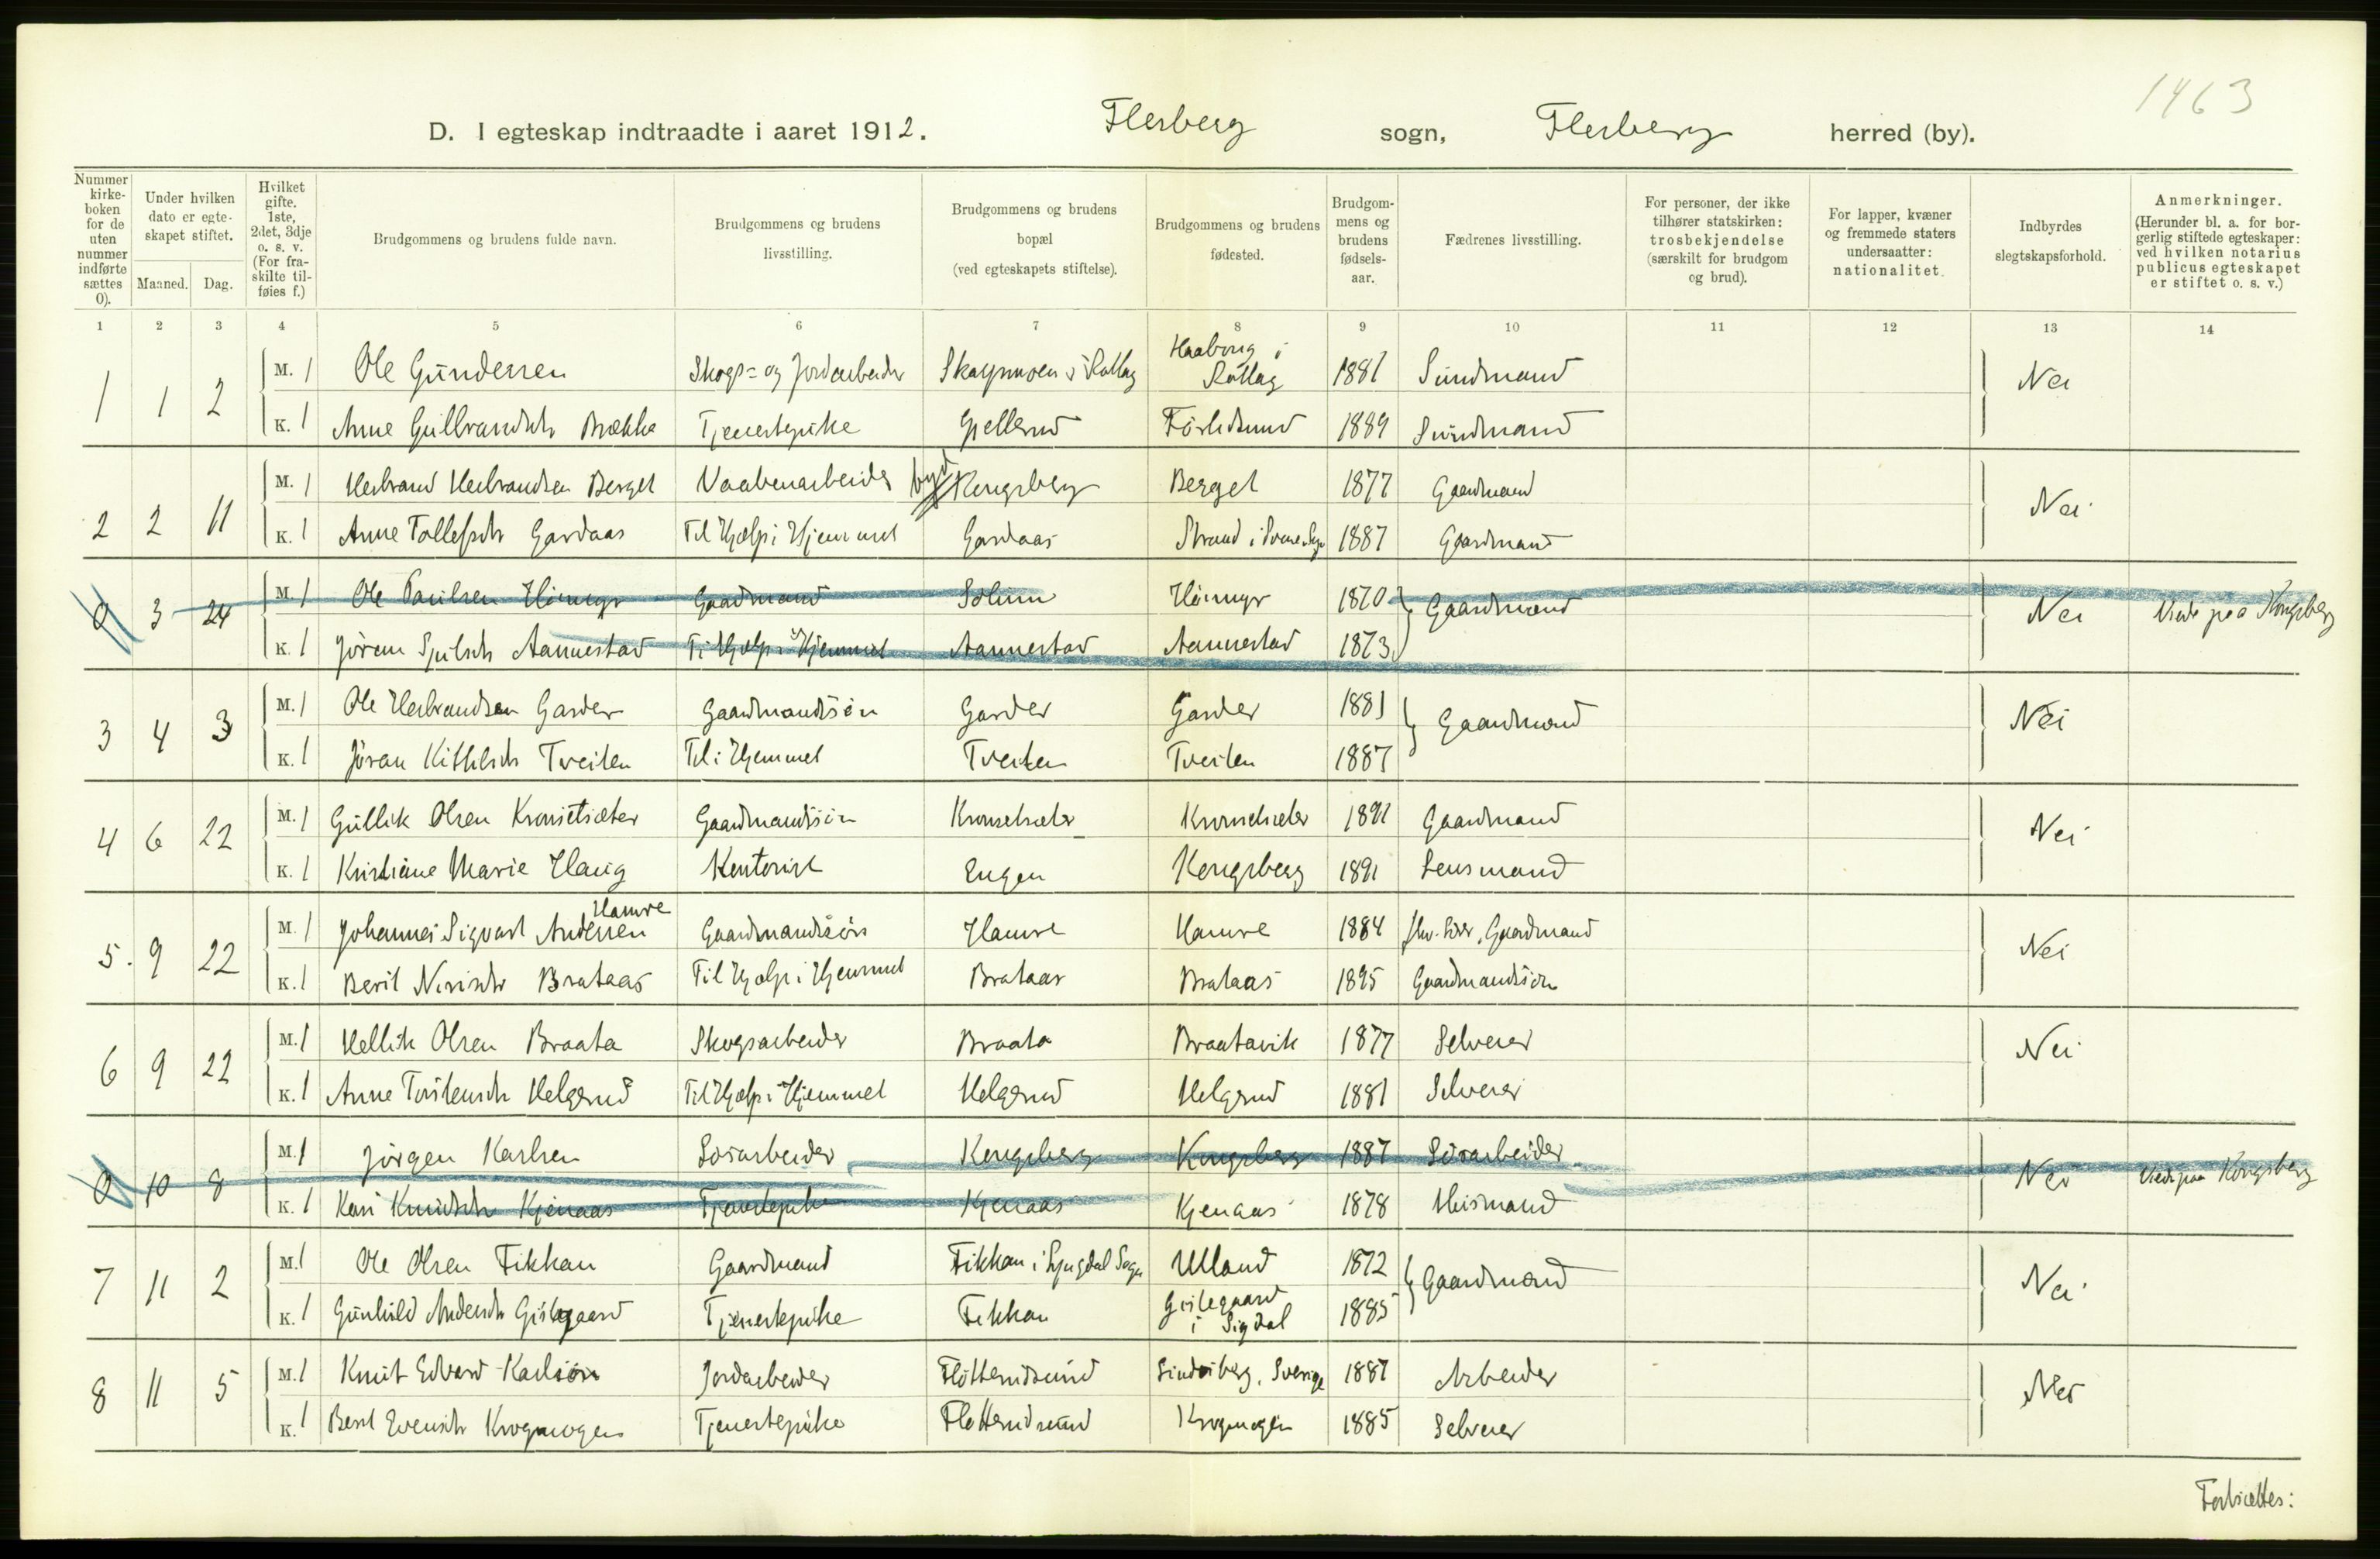 1463
D. I egteskap indtraadte i aaret 1912. Flesberg sogn, Flesberg herred (by).
Nummer kirke-boken for de uten nummer indførte sættes 0).
Under hvilken dato er egte-skapet stiftet.
Maaned. Dag.
Hvilket gifte. 1ste, 2det, 3dje o. s. v. (For fra-skilte til-føies f.)
Brudgommens og brudens fulde navn.
Brudgommens og brudens livsstilling.
Brudgommens og brudens bopæl (ved egteskapets stiftelse).
Brudgommens og brudens fødested.
Brudgom-mens og brudens fødsels-aar.
Fædrenes livsstilling.
For personer, der ikke tilhører statskirken: trosbekjendelse (særskilt for brudgom og brud).
For lapper, kvæner og fremmede staters undersaatter: nationalitet.
Indbyrdes slegtskapsforhold.
Anmerkninger. (Herunder bl. a. for bor-gerlig stiftede egteskaper: ved hvilken notarius publicus egteskapet er stiftet o. s. v.)
1 2 3 4 5 6 7 8 9 10 11 12 13 14
1 1 2 M. 1 Ole Gundersen Skogs= og Jordarbeider i Rollag Haaberg i Rollag 1881 Sundmand Nei
K. 1 Anne Gulbrandsdtr Brække Tjenestepike Gjellerud 1889 Sundmand
2 2 11 M. 1 Herbrand Herbrandsen Berget Vaabenarbeider by Kongsberg Berget 1877 Gaardmand Nei
K. 1 Anne Tollefsdtr Gardaas Til Hjælp i Hjemmet Gardaas Strand i 1887 Gaardmand
0 3 24 M. 1 Ole Paulsen Gaardmand Solum 1870 Gaardmand Nei Viede paa Kongsberg
K. 1 Jøran Aannestad Til Hjælp i Hjemmet Aannestad Aannestad 1873
3 4 3 M. 1 Ole Herbrandsen Garder Gaardmandssøn Garder Garder 1881 Gaardmand Nei
K. 1 Jøran Kittilsdtr Tveiten Til i Hjemmet Tveiten Tveiten 1887
4 6 22 M. 1 Gullik Olsen Kronsetsæter Gaardmandssøn Kronsetsæter Kronsetsæter 1891 Gaardmand Nei
K. 1 Kristiane Marie Haug Kontorist Engen Kongsberg 1891 Lensmand
5. 9 22 M. 1 Johannes Sigvart Andersen Hamre Gaardmandssøn Hamre Hamre 1884 Gaardmand Nei
K. 1 Berit Nirisdtr Brataas Til Hjælp i Hjemmet Brataas Brataas 1895 Gaardmandssøn
6 9 22 M. 1 Hellik Olsen Braata Skogsarbeider Braata Braatavik 1877 Selveier Nei
K. 1 Anne Torstensdtr Helgerud Til Hjælp i Hjemmet Helgerud Helgerud 1881 Selveier
0 10 8 M. 1 Jørgen Karlsen Kongsberg Kongsberg 1887 Nei Viede paa Kongsberg
K. 1 Kari Knudsdtr Kjenaas Tjenestepike Kjenaas Kjenaas 1878 Husmand
7 11 2 M. 1 Ole Olsen Fikkan Gaardmand Fikkan i Lyngdal Sogn Ulland 1872 Gaardmand Nei
K. 1 Gunhild Andersdtr Gislegaard Tjenestepike Fikkan Gislegaard i Sigdal 1885
8 11 5 M. 1 Knut Edvard Karlsson Jordarbeider Flotterudsund Sverige 1887 Arbeider Nei
K. 1 Berit Evensdtr Krogmogen Tjenestepike Flotterudsund Krogmogen 1885 Selveier
Fortsættes: